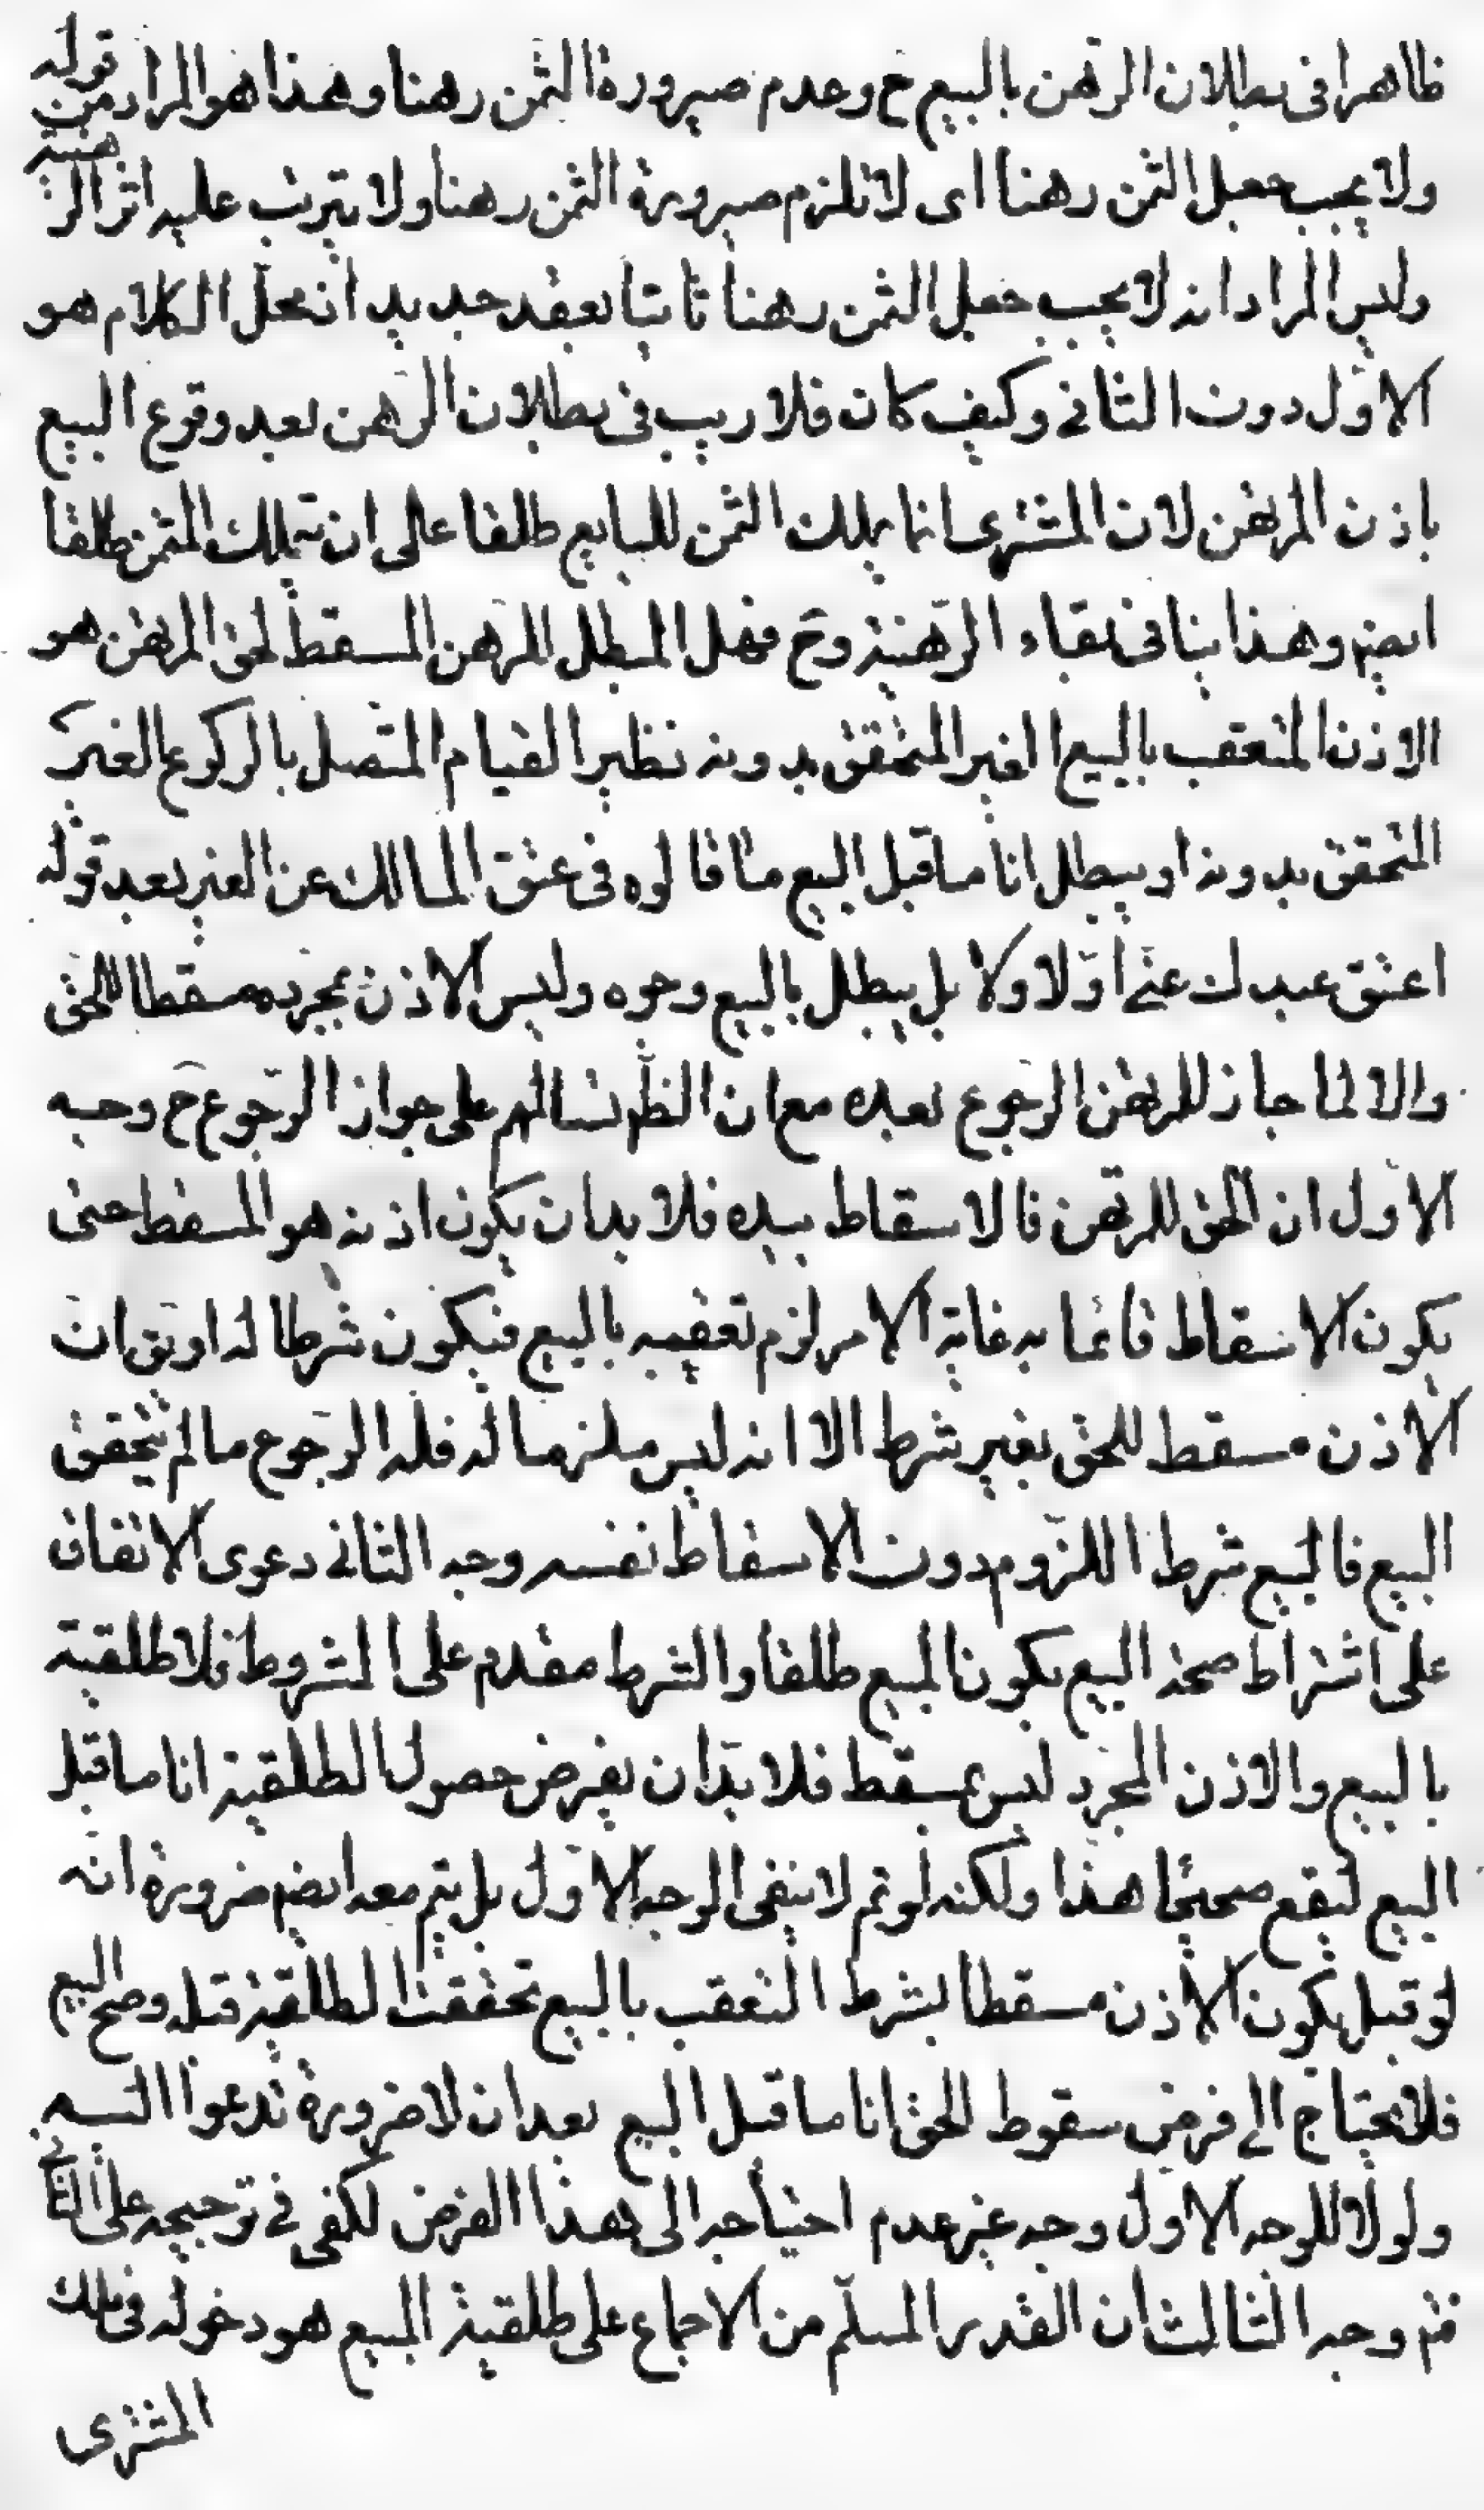 ظاهرا فى بطلان الرّهن بالبيع ح وعدم صيرورة الثمن رهنا وهذا هو المراد من قوله
ولا يجب جعل الثمن رهنا اى لا تلزم صيرورة الثمن رهنا ولا يترتب عليه اثر الرهنية
وليس المراد انه لا يجب جعل الثمن رهنا ثابتا بعقد جديد اذ محلّ الكلام هو
الاوّل دون الثانى وكيف كان فلا ريب فى بطلان الرهن بعد وقوع البيع
باذن المرتهن لان المشترى انما يملك الثمن للبايع طلقا على ان يتملك المثمن طلقا
ايضم وهذا ينافى بقاء الرّهنية وح فهل المبطل للرهن المسقط لحق المرتهن هو
الاذن المتعقب بالبيع الغير المتحقق بدونه نظير القيام المتّصل بالركوع الغير
المتحقق بدونه او يبطل انا ما قبل البيع مثا قالوه فى عتق المالك عن الغير بعد قوله
اعتق عبدك عنّى اوّلا ولا بل يبطل بالبيع وجوه وليس الاذن بمجرده مسقطا للحق
والا لما جاز للمرتهن الرجوع بعده مع ان الظم تسالمهم على جواز الرّجوع ح وجه
الاوّل ان الحق للمرتهن فالاسقاط بيده فلا بد ان يكون اذنه هو المسقط حتى
يكون الاسقاط قائما به غاية الامر لزم تعقيبه بالبيع فيكون شرطا له او يق ان
الاذن مسقط للحق بغير شرط الا انه ليس ملزما له فله الرجوع ما لم يتحقق
البيع فالبيع شرط اللزوم دون الاسقاط نفسه وجه الثانى دعوى الاتفاق
على اشتراط صحة البيع بكون المبيع طلقا والشرط مقدم على المشروط فلا طلقية
بالبيع والاذن المجرد ليس بمسقط فلا بدّ ان يفرض حصول الطلقية انا ما قبل
البيع ليقع صحيحا هذا ولكنه لو تم لا ينفى الوجه الاوّل بل يتم معه ايضم ضرورة انّه
لو قيل بكون الاذن مسقطا بشرط التعقب بالبيع تحققت الطلقية قبله وصح البيع
فلا يحتاج الى فرض سقوط الحق انا ما قبل البيع بعد ان لا ضرورة تدعوا اليه
ولولا للوجه الاوّل وجه غير عدم احتياجه الى هذا الفرض لكفى فى ترجيحه على الثانى
فتم وجه الثالث ان القدر المسلّم من الاجماع على طلقية المبيع هو دخوله فى ملك
المشترى